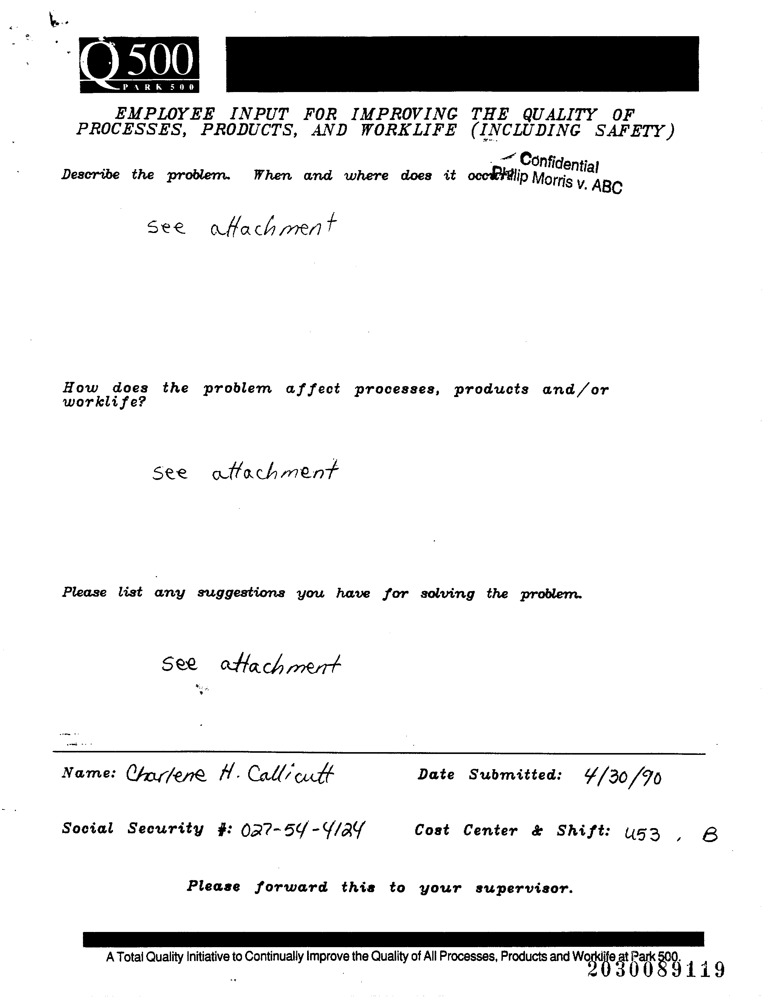 Q500
PARK 500
EMPLOYEE INPUT FOR IMPROVING THE QUALITY OF
PROCESSES, PRODUCTS, AND WORKLIFE (INCLUDING SAFETY)
Confidential
Philip Morris v. ABC
Describe the problem. When and where does it
see attachment
How does the problem affect processes, products and/or
worklife?
see attachment
Please list any suggestions you have for solving the problem.
see attachment
Name: Charlene H. Callicutt Date Submitted: 4/30/90
Social Security #: 027-54-4124 Cost Center & Shift: U53, B
Please forward this to your supervisor.
A Total Quality Initiative to Continually Improve the Quality of All Processes, Products and Worklife at Park 500.
2030089119